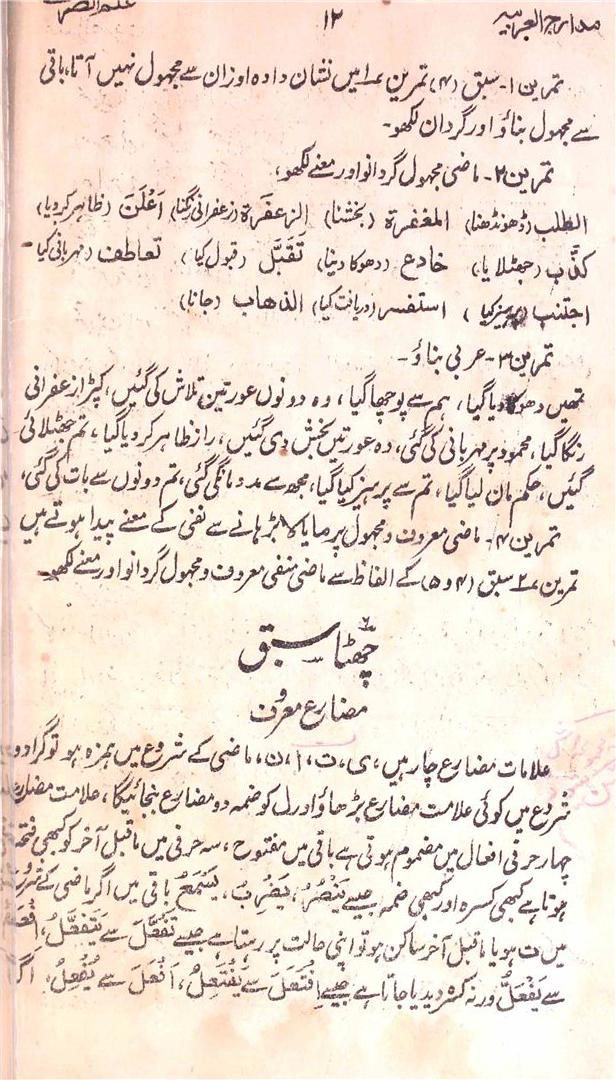 مدارج العربیہ ۱۲ علم الصرف
تمرین ۱- سبق (۴) تمرین ۱ میں نشان دادہ اوزان سے مجہول نہیں آتا، باقی
سے مجہول بناؤ اور گردان لکھو۔
تمرین ۲- ماضی مجہول گردانو اور معنے لکھو،
الطلب (ڈھونڈھنا) المغفرۃ (بخشنا) الزعفرۃ (زعفرانی رنگنا) اَعْلَنَ (ظاہر کر دیا)
کذّب (جھٹلایا) خادع (دھوکا دینا) تَقَبَّلَ (قبول کیا) تعاطف (مہربانی کیا)
اجتنب (پرہیز کیا) استفسر (دریافت کیا) الذھاب (جانا)
تمرین ۳- عربی بناؤ۔
تمہیں دھوکا دیا گیا، ہم سے پوچھا گیا، وہ دونوں عورتیں تلاش کی گئیں، کپڑا زعفرانی
رنگا گیا، محمود پر مہربانی کی گئی، وہ عورتیں بخش دی گئیں، راز ظاہر کر دیا گیا، تم جھٹلائی
گئیں، حکم مان لیا گیا، تم سے پرہیز کیا گیا، مجھ سے مدد مانگی گئی، تم دونوں سے بات کی گئی،
تمرین ۴- ماضی معروف و مجہول پر ما یا لا بڑہانے سے نفی کے معنے پیدا ہوتے ہیں
تمرین ۲ سبق (۴ و ۵) کے الفاظ سے ماضی منفی معروف و مجہول گردانو اور معنے لکھو۔
چھٹا سبق ۶
مضارع معروف
علامات مضارع چار ہیں، ی، ت، ا، ن، ماضی کے شروع میں ہمزہ ہو تو گرا دو
شروع میں کوئی علامت مضارع بڑھاؤ اور ل کو ضمہ دو مضارع بنجائیگا، علامت مضارع
چہار حرفی افعال میں مضموم ہوتی ہے باقی میں مفتوح، سہ حرفی میں ماقبل آخر کو کبھی فتحہ
ہوتا ہے کبھی کسرہ اور کبھی ضمہ جیسے یَنْصُرُ، یَضْرِبُ، یَسْمَعُ باقی میں اگر ماضی کے شروع
میں ت ہو یا ماقبل آخر ساکن ہو تو اپنی حالت پر رہتا ہے جیسے تَفَعَّلَ سے یَتَفَعَّلُ،
سے یَفْعَلُّ ورنہ کسرہ دیدیا جاتا ہے جیسے اِفْتَعَلَ سے یَفْتَعِلُ، اَفْعَلَ سے یُفْعِلُ، اگر